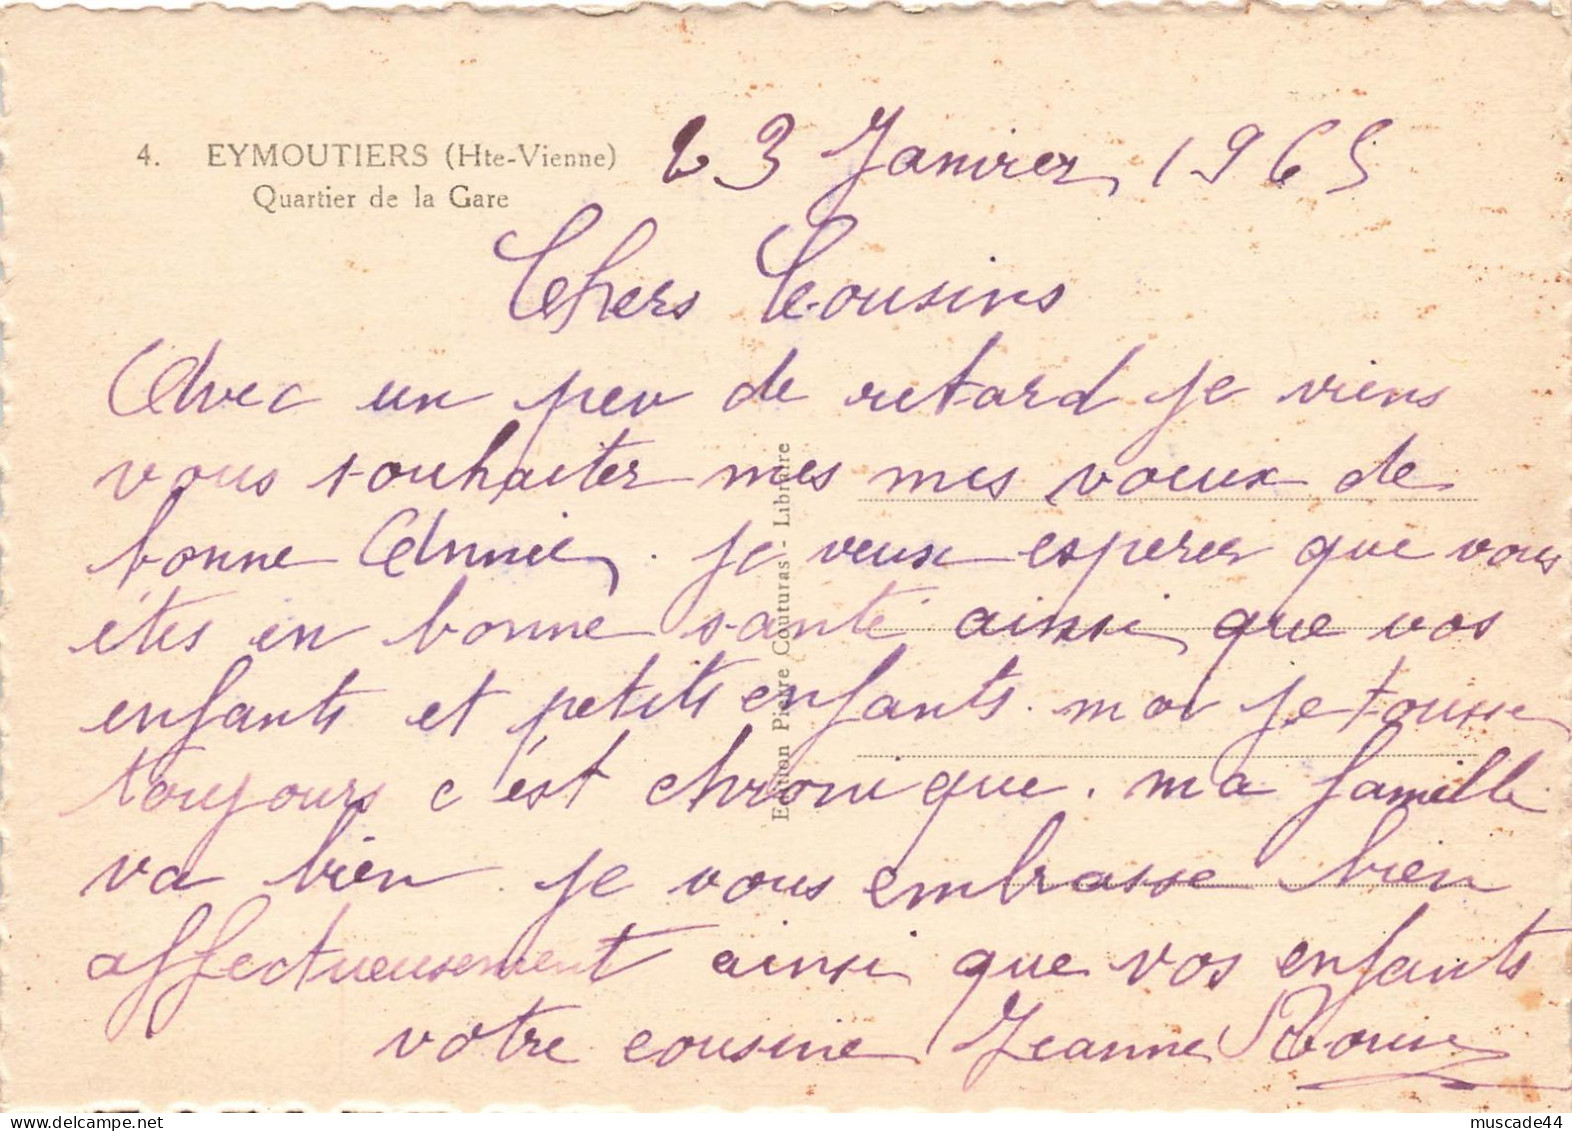 4. EYMOUTIERS (Hte-Vienne)
Quartier de la Gare
23 Janvier 1965
Chers Cousins
Avec un peu de retard je viens
vous souhaiter mes mes voeux de
bonne Année. je veux esperer que vous
êtes en bonne santé ainsi que vos
enfants et petits enfants. moi je tousse
toujours c'est chronique. ma famille
va bien je vous embrasse bien
affectueusement ainsi que vos enfants
votre cousine Jeanne
Edition Pierre Couturas - Libraire
muscade44